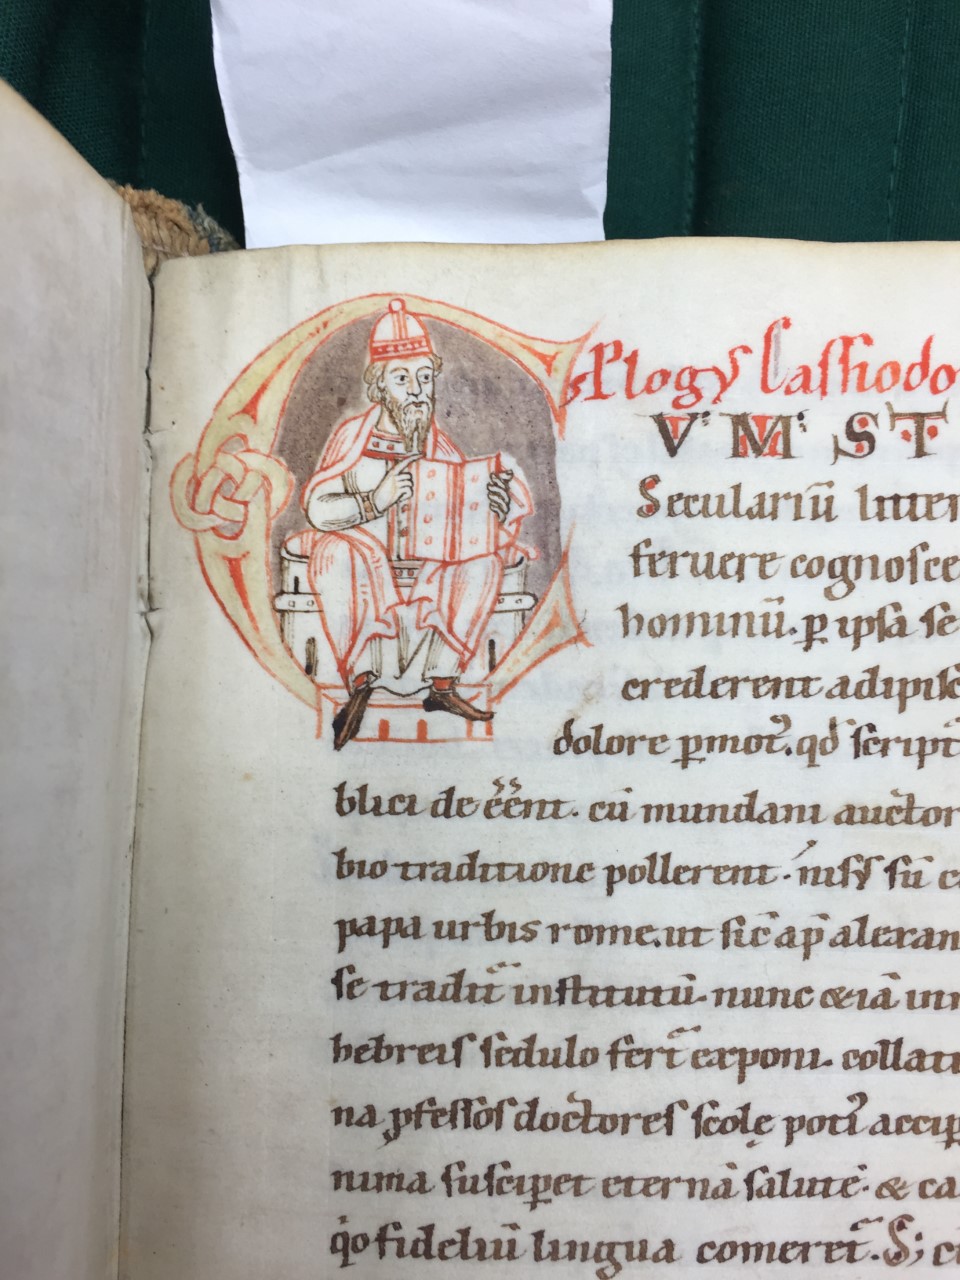 Plogꝰ Cassiodo
C VM ST
Seculariū litter
feruere cognosce
hominū. ꝑ ipsā se
crederent adipisc
dolore ꝑmotꝰ. qđ script
blici de ēēnt. cū mundani auctor
bio traditione pollerent. sū
papa urbis rome. ut sic̄ ap̄ alexan
se tradit̄ institutū. nunc & iā in
hebreis sedulo fert̄ exponi. collati
na ꝓfessos doctores scolę poti accip
nima susciꝑet eternā salutē. & ca
fideliū lingua comeret̄.